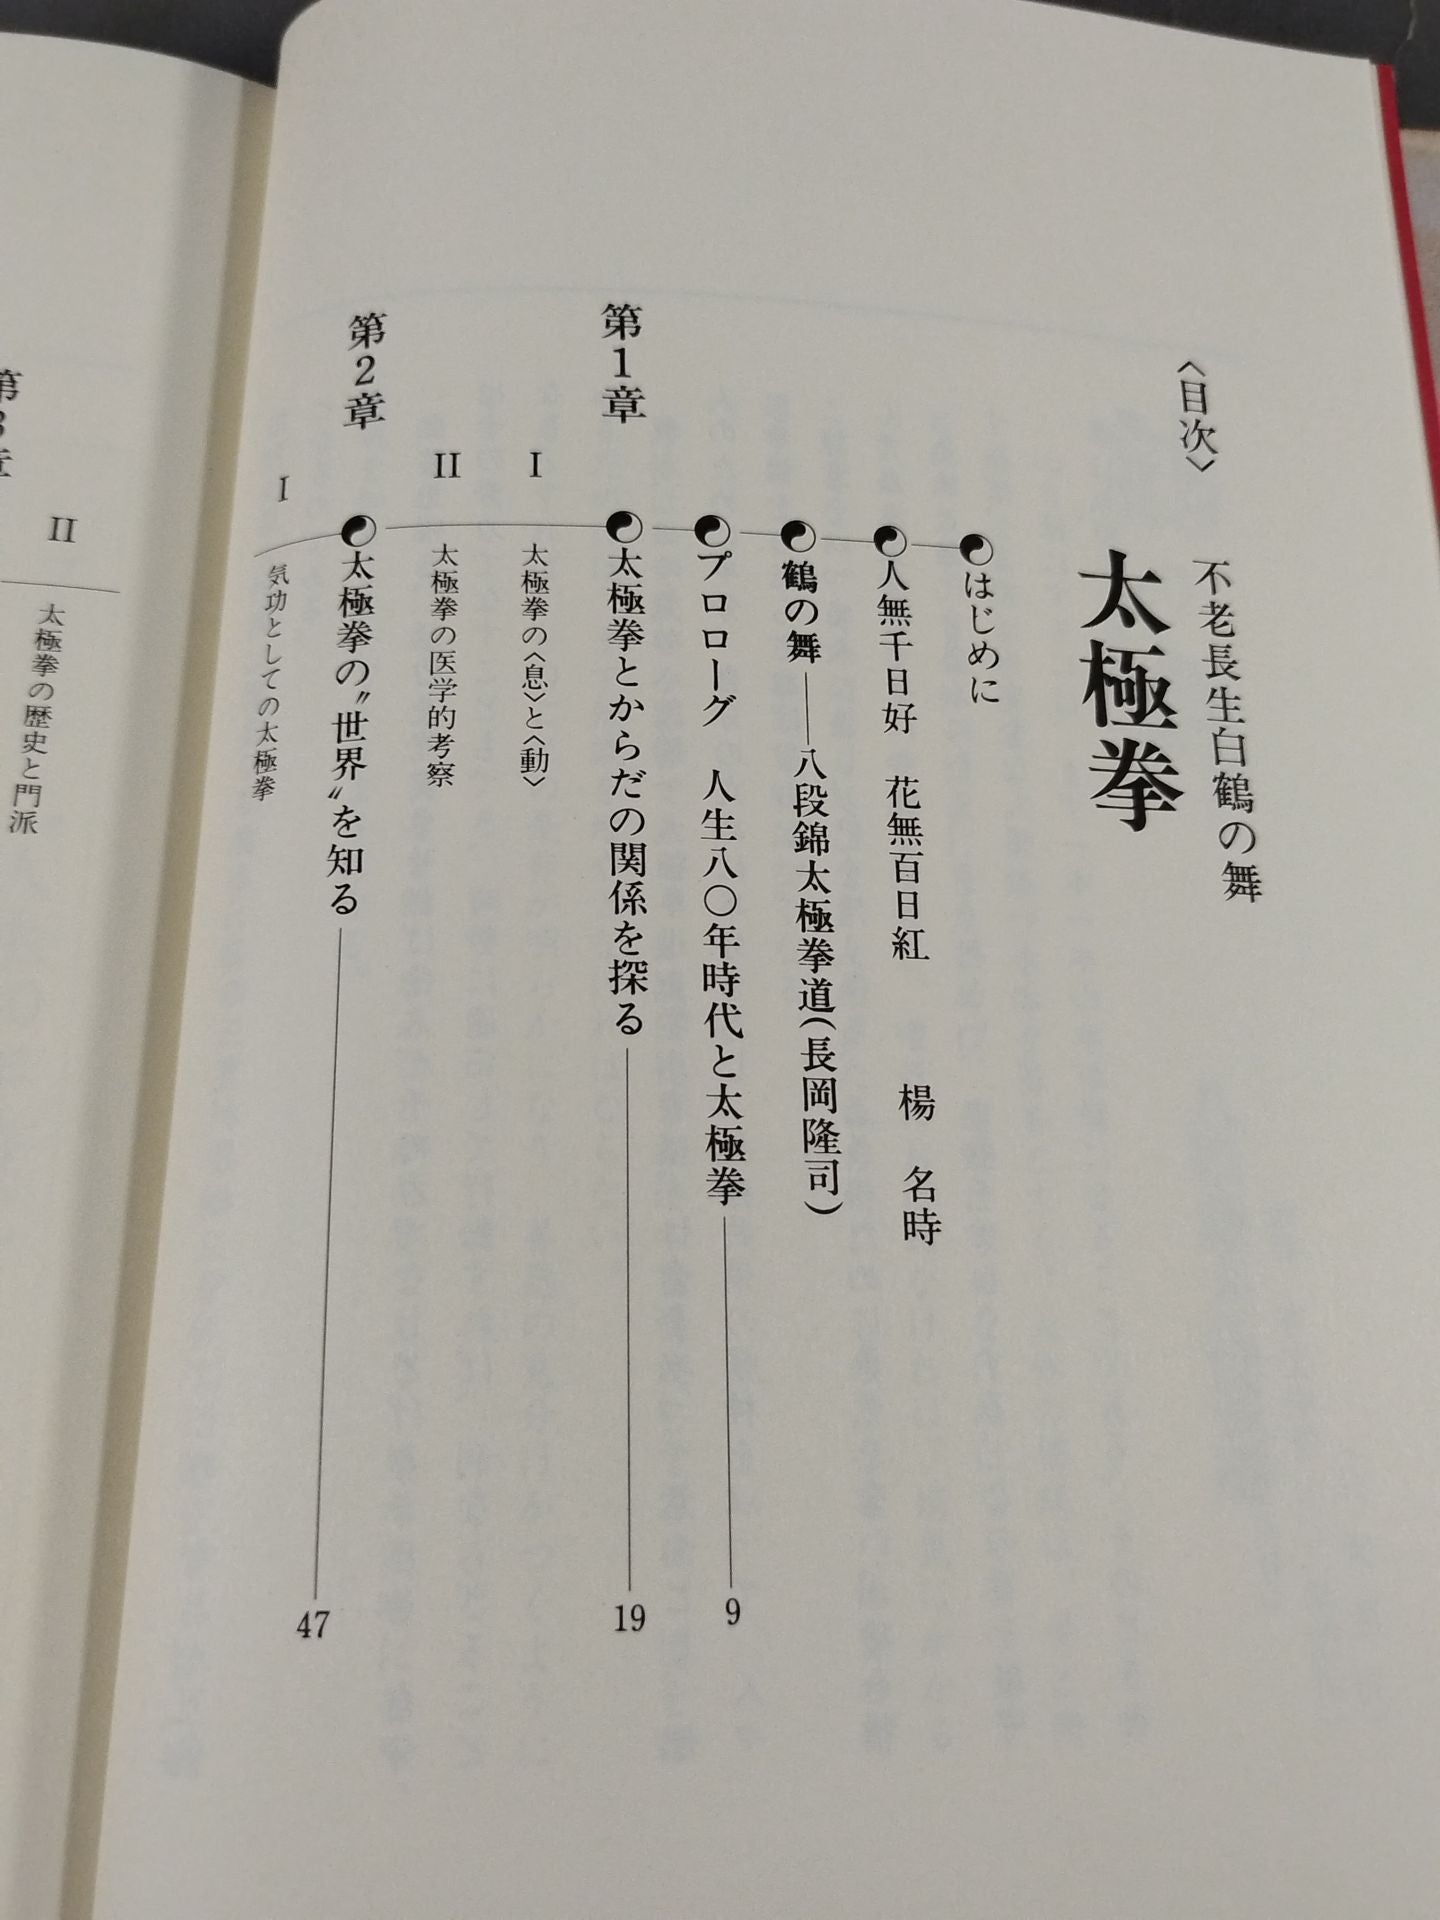 〈目次〉
不老長生白鶴の舞
太極拳
はじめに
人無千日好 花無百日紅 楊 名時
鶴の舞――八段錦太極拳道(長岡隆司)
プロローグ 人生八〇年時代と太極拳 9
第1章 太極拳とからだの関係を探る 19
I 太極拳の〈息〉と〈動〉
II 太極拳の医学的考察
第2章 太極拳の〝世界〟を知る 47
I 気功としての太極拳
II 太極拳の歴史と門派
第3章